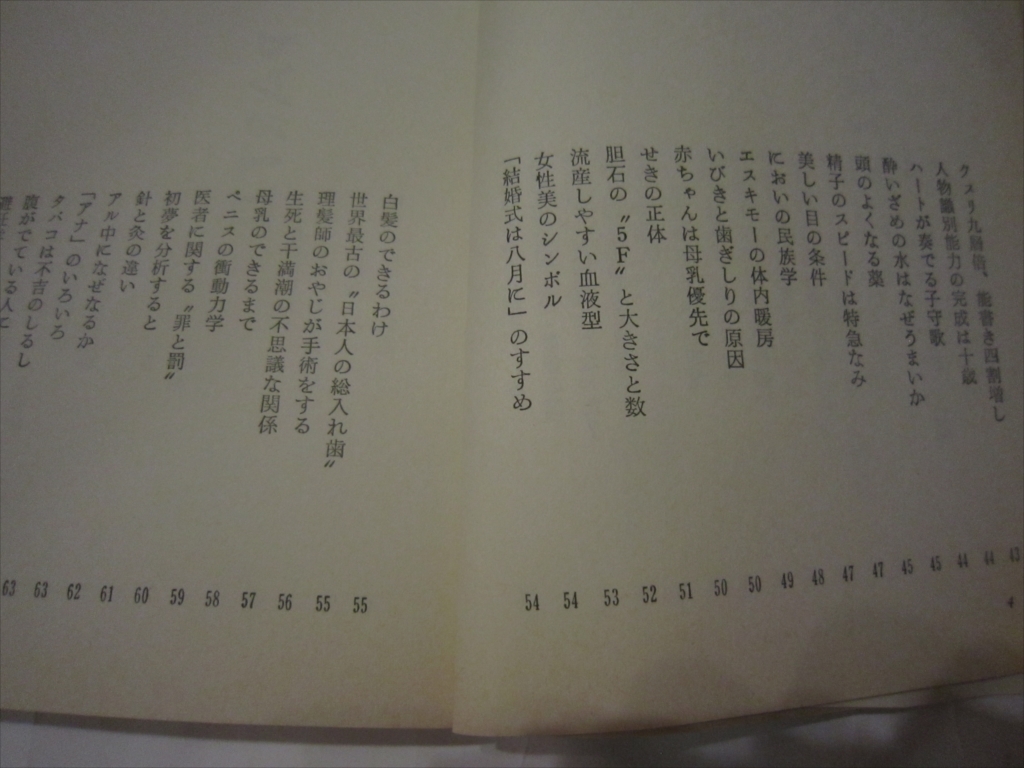 クスリ九層倍、能書き四割増し 43
人物識別能力の完成は十歳 44
ハートが奏でる子守歌 44
酔いざめの水はなぜうまいか 45
頭のよくなる薬 45
精子のスピードは特急なみ 47
美しい目の条件 47
においの民族学 48
エスキモーの体内暖房 49
いびきと歯ぎしりの原因 50
赤ちゃんは母乳優先で 50
せきの正体 51
胆石の〝5F〟と大きさと数 52
流産しやすい血液型 53
女性美のシンボル 54
「結婚式は八月に」のすすめ 54
4
白髪のできるわけ 55
世界最古の〝日本人の総入れ歯〟 55
理髪師のおやじが手術をする 56
生死と干満潮の不思議な関係 57
母乳のできるまで 58
ペニスの衝動力学 59
医者に関する〝罪と罰〟 60
初夢を分析すると 61
針と灸の違い 62
アル中になぜなるか 63
「アナ」のいろいろ 63
タバコは不吉のしるし
腹がでている人に